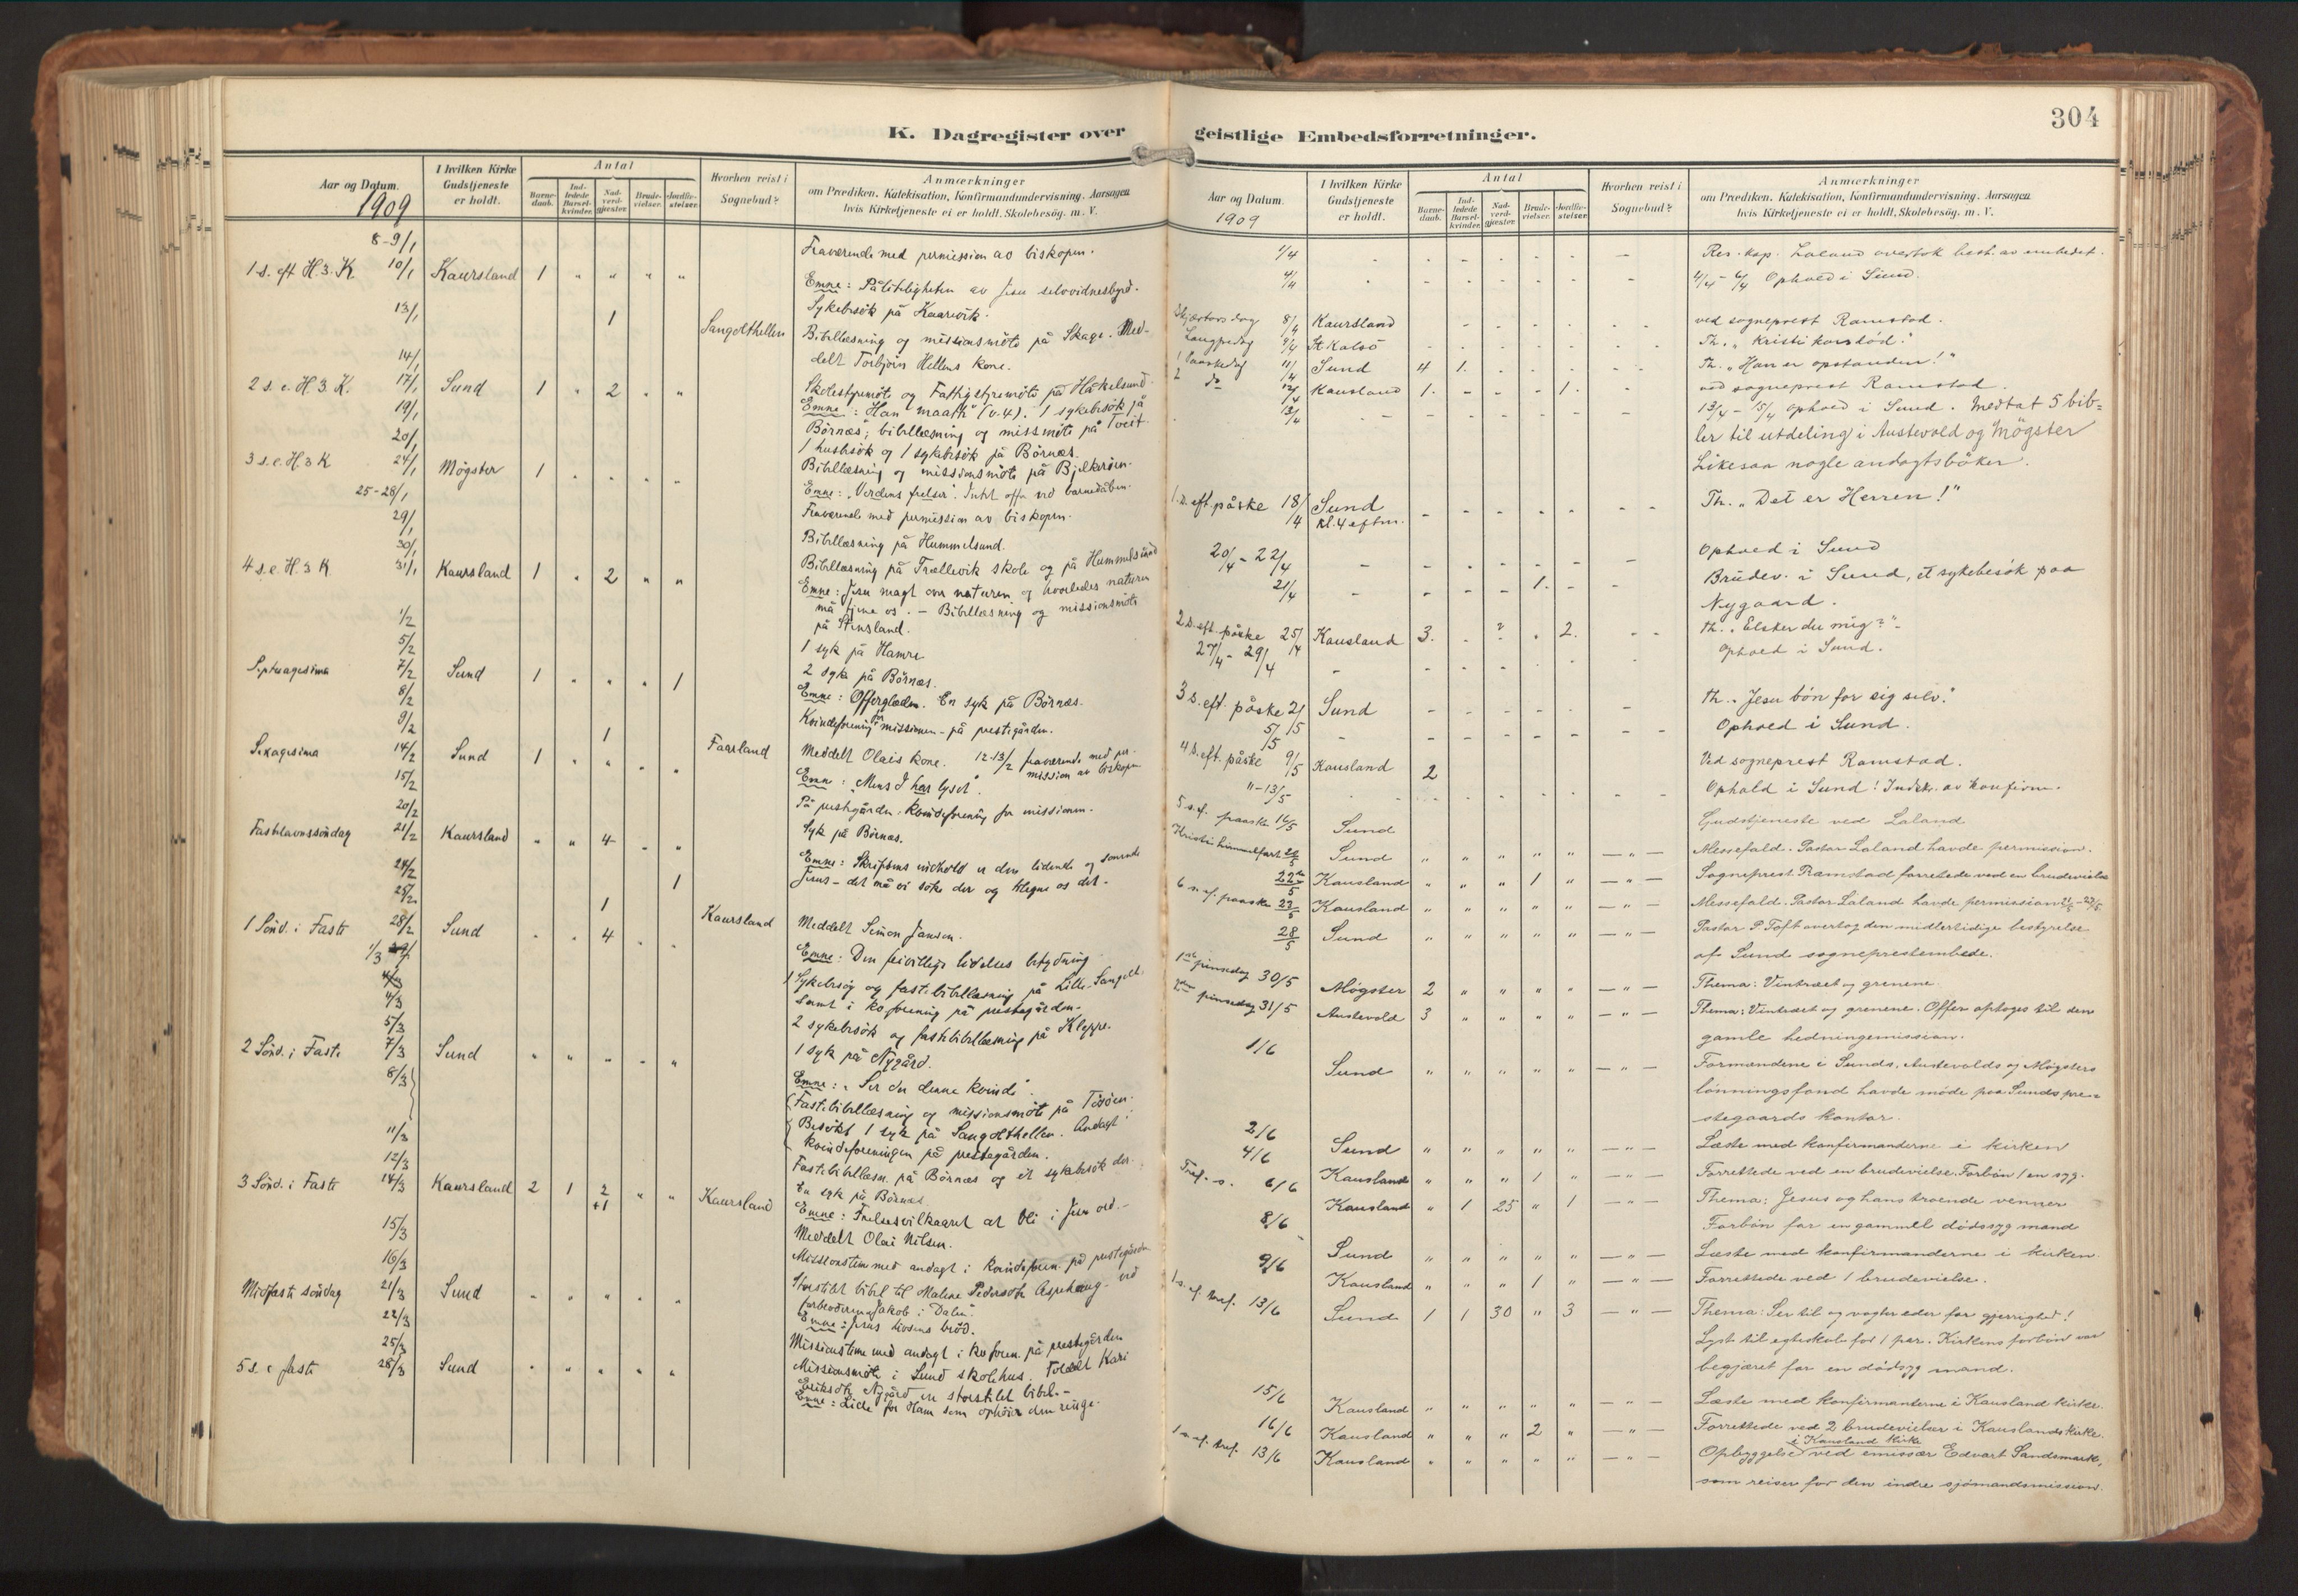 K. Dagregister over
Aar og Datum.
1909
I hvilken Kirke Gudstjeneste er holdt.
Antal
Barne-daab.
Ind-ledede Barsel-kvinder.
Nad-verd-gjester.
Brude-vielser.
Jordfæ-stelser.
Hvorhen reist i Sognebud?
Anmærkninger
om Prædiken, Katekisation, Konfirmandundervisning, Aarsagen
hvis Kirketjeneste ei er holdt, Skolebesøg. m. V.
8-9/1 Fraværende med permission av biskopen.
1 s. eft H. 3. K. 10/1 Kaursland 1 " " " " Emne: Pålitligheten av Jesu selvvidnesbyrd.
13/1 1 Sangolthellen Sykebesök på Kaarevik.
Bibellæsning og missionsmöte på Skage. Med-
14/1 delt Torbjörn Hellens kone.
2 s. e. H. 3 K. 17/1 Sund 1 " 2 " " Skolestyremöte og Fattigstyremöte på Hakelsund.
19/1 Emne: Han "maatte" (v.4). 1 sykebesök på
20/1 Börnæs; bibellæsning og missmöte på Tveit.
1 husbesök og 1 sykebesök på Börnæs.
3 s. e. H. 3 K 24/1 Møgster 1 " " " " Bibellæsning og missionsmöte på Bjelkeröen.
25-28/1 Emne: "Verdens frelser". Intet offer ved barnedåben.
29/1 Fraværende med permission av biskopen.
30/1 Bibellæsning på Hummelsund.
4 s. e. H. 3 K 31/1 Kaursland 1 " 2 " " Bibellæsning på Trællevik skole og på Hummelsund
Emne: Jesu magt over naturen og hvorledes naturen
1/2 må tjene os. - Bibellæsning og missionsmöte
på Stensland.
5/2 1 syk på Hamre
Septuagesima 7/2 Sund 1 " " " 1 2 syk på Börnæs.
8/2 Emne: Offerglæden. En syk på Börnæs.
9/2 1 Faarland Kvindeforening for missionen - på prestegården.
Sexagesima 14/2 Sund 1 " " " " Meddelt Olais kone. 12-13/2 fraværende med per-
mission av biskopen
15/2 Emne: "Mens I har lyset".
20/2 På prestegården, kvindeforening for missionen.
Fastelavnssöndag 21/2 Kaursland " " 4 " " Syk på Börnæs.
24/2 1 Emne: Skriftens indhold er den lidende og sonende
25/2 1 Kaursland Jesus - det må vi söke der og tilegne os det.
1 Sönd. i Faste 28/2 Sund " " 4 " " Meddelt Simon Jansen.
1/3 Emne: Den frivillige lidelses betydning
4/3 1 Sykebesög og fastebibellæsning på Lille-Sangolt
samt i kv.forening på prestegården.
5/3 2 sykebesök og fastebibellæsning på Kleppe.
2 Sönd. i Faste 7/3 Sund " " " " " 1 syk på Nygård.
8/3 Emne: "Ser du denne kvinde".
Fastebibellæsning og missionsmöte på Tösöen.
11/3 Besökt 1 syk på Sangolthellen. Andagt i
12/3 kvindeforeningen på prestegården.
3 Sönd. i Faste 14/3 Kaursland 2 1 2 +1 " " Kaursland Fastebibellæsn. på Börnæs og et sykebesök der.
En syk på Börnæs.
15/3 Emne: Frelsesvilkaaret at bli i Jesu ord.-
Meddelt Olai Nilsen.
16/3 Missionstime med andagt i kvindeforen. på prestegården
Midfaste söndag 21/3 Sund " " " " " Storstilet bibel til Malene Pedersdtr Aspehaug - ved
forbederinnen Jakob i "Dalen".
22/3 Emne: Jesus livsens bröd.
25/3 Missionstime med andagt i kv.foren. på prestegården
5 s. i faste 28/3 Sund " " " " " Missionsmöte i Sund skolehus. Tildelt Kari
Eriksdtr Nygård en storstilet bibel.-
Emne: Lide for Ham som ophöier den ringe.
geistlige Embedsforretninger.
304
Aar og Datum.
1909
I hvilken Kirke Gudstjeneste er holdt.
Antal
Barne-daab.
Ind-ledede Barsel-kvinder.
Nad-verd-gjester.
Brude-vielser.
Jordfæ-stelser.
Hvorhen reist i Sognebud?
Anmærkninger
om Prædiken, Katekisation, Konfirmandundervisning, Aarsagen
hvis Kirketjeneste ei er holdt, Skolebesøg. m. V.
1/4 - - - - - - - Res. kap. Laland overtok best. av embedet.
4/4 - - - - - - - 4/4 - 6/4 Ophold i Sund.
Skjærtorsdag 8/4 Kaursland - - - - - - ved sogneprest Ramstad.
Langfredag 9/4 St Kalsö - - - - - - Th. "Kristi korsdöd."
1 Paaskedag 11/4 Sund 4 1. Th. "Han er opstanden!"
2 do 12/4 Kausland 1. - - - 1. - ved sogneprest Ramstad.
13/4 - - - - - - - 13/4 - 15/4 ophold i Sund. Medtat 5 bib-
ler til utdeling i Austevold og Mögster
Likesaa nogle andagtsböker.
1. s. eft. påske 18/4 Sund kl. 4 eftm. - - - - - - - Th. "Det er Herren!"
20/4 - 22/4 - - - - - - - Ophold i Sund
21/4 - - - - 1. - - Brudev. i Sund, et sykebesök paa
Nygaard.
2 s. eft. påske 25/4 Kausland 3. - ? - 2. - - Th. "Elsker du mig?"
27/4 - 29/4 - - - - - - Ophold i Sund.
3 s. eft. påske 2/5 Sund - - - - - - Th. "Jesu bön for sig selv."
5/5 - - - - - - - Ophold i Sund.
4 s. eft. påske 9/5 Kausland 2 Ved sogneprest Ramstad.
"-13/5 Ophold i Sund! Indskr. av konfirm.
5 s. ef. paaske 16/5 Sund Gudstjeneste ved Laland
Kristi himmelfart 20/5 Sund " " " " " — " — Messefald. Pastor Laland havde permission.
22de/5 Kausland " " " 1 " — " — Sogneprest Ramstad forrettede ved en brudevielse
6 s. ef. paaske 23/5 Kausland " " " " " — " — Messefald. Pastor Laland havde permission 21/5 - 27/5.
28/5 Sund " " " " " — " — Pastor P Toft overtog den midlertidige bestyrelse
af Sund sogneprestembede.
1ste pinsedag 30/5 Møgster 2 " " " " — " — Thema: Vintræet og grenene.
2den pinsedag 31/5 Austevold 3 " " " " — " — Thema: Vintræet og grenene. Offer optoges til den
gamle hedningemission.
1/6 Sund " " " " " — " — Formændene i Sunds, Austevolds og Møgsters
lønningsfond havde møde paa Sunds pre-
stegaards kontor.
2/6 Sund " " " " " — " — Læste med konfirmanderne i kirken
4/6 Kausland " " " 1 " — " — Forrettede ved en brudevielse. Forbøn 1 en syg.
Tref. s. 6/6 Kausland " 1 25 " 1 — " — Thema: Jesus og hans troende venner
Forbøn for en gammel dødssyg mand
8/6 Sund " " " " " — " — Læste med konfirmanderne i kirken.
9/6 Kausland " " " 1 " — " — Forrettede ved 1 brudevielse.
1 s. ef. tref. 13/6 Sund 1 1 30 " 3 — " — Thema: Se til og vogter eder for gjerrighed!
Lyst til egteskab for 1 par. Kirkens forbøn var
begjæret for en dødssyg mand.
15/6 Kausland " " " " " — " — Læste med konfirmanterne i Kausland kirke.
16/6 Kausland " " " 2 " — " — Forrettede ved 2 brudevielser i Kauslands kirke.
1 s. ef. tref. 13/6 Kausland " " " " " — " — Opbyggelse i Kausland kirke ved emissær Edvart Sandsmark,
som reiser for den indre sjømandsmission.